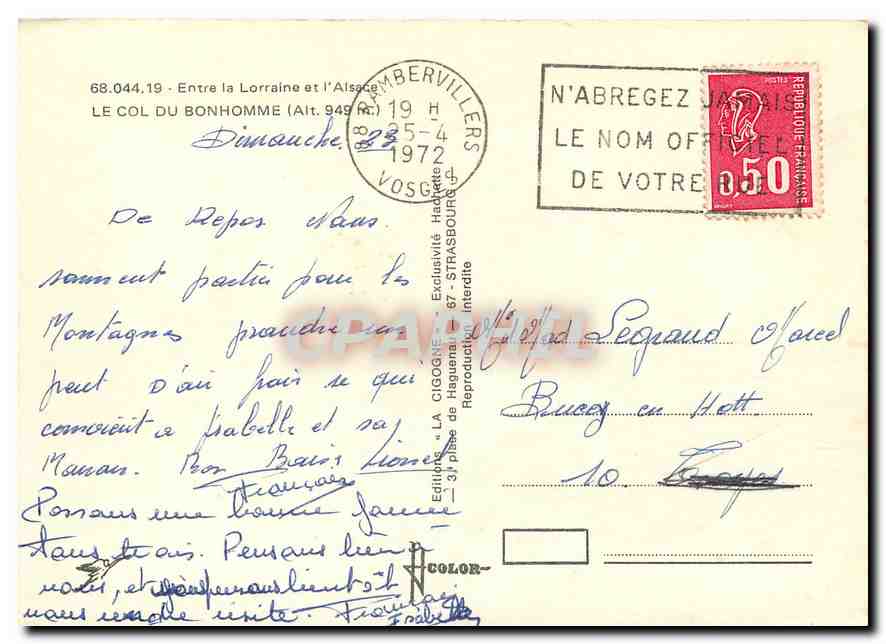 68.044.19 - Entre la Lorraine et l'Alsace
LE COL DU BONHOMME (Alt. 949 m.)
88 RAMBERVILLERS
19 H
25-4
1972
VOSGES
N'ABREGEZ JAMAIS
LE NOM OFFICIEL
DE VOTRE RUE
POSTES
REPUBLIQUE FRANÇAISE
0,50
Dimanche 23
De Repos Nous
somment partie pour les
Montagnes prandre un
peut d'air frais se qui
convient a Isabelle et sa
Maman. Bon Baiss Lionel
Française
Passons une bonne journée
tous trois. Pensons bien a
vous, et
vous rendre visite. Française
Isabelle
Editions « LA CIGOGNE » - Exclusivité Hachette
— 3, place de Haguenau — 67 - STRASBOURG —
Reproduction interdite
CPARHIL
Mr Mad Legrand Marcel
Bucey en Hott.
10. Troyes
COLOR